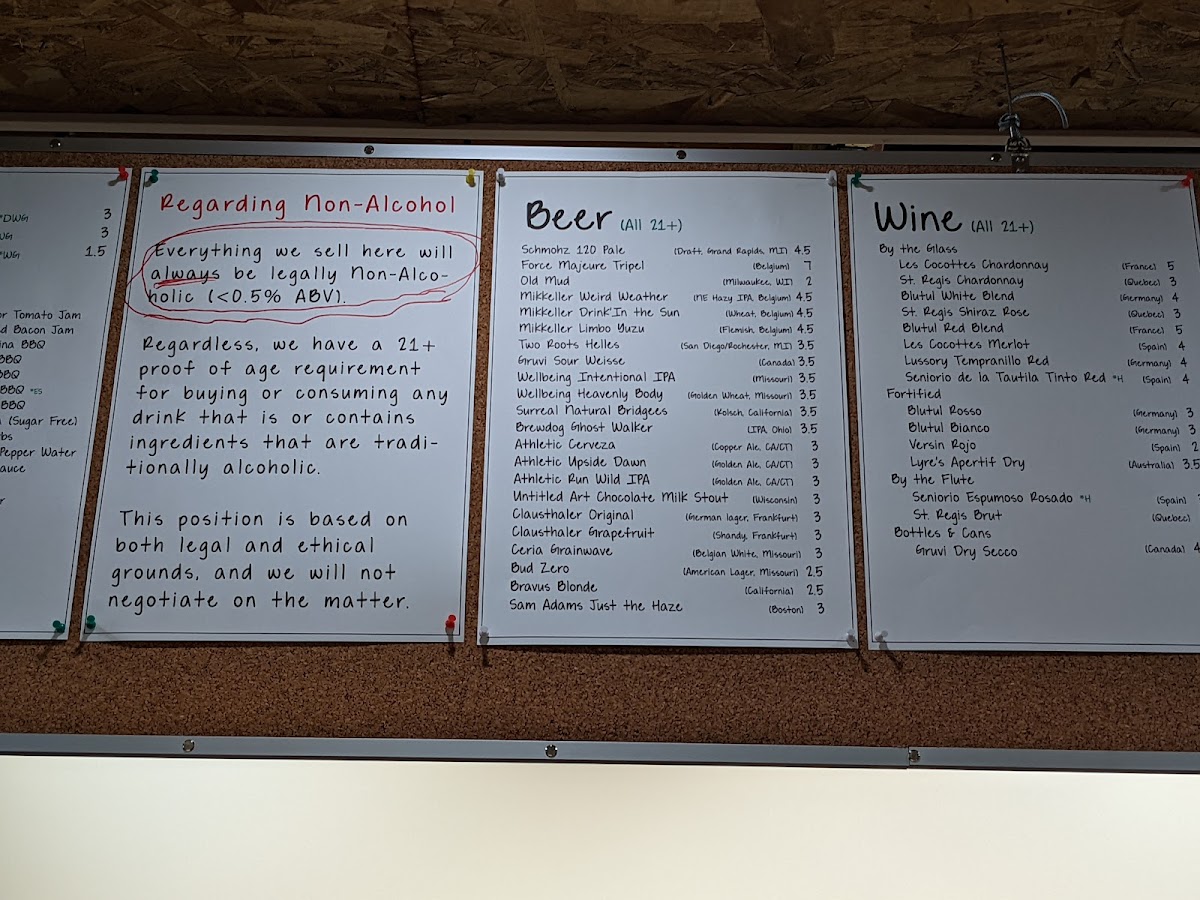 *DWG 3
WG 3
*WG 1.5
or Tomato Jam
d Bacon Jam
na BBQ
BBQ
BBQ
BBQ *ES
BBQ
(Sugar Free)
bs
Pepper Water
auce
r
Regarding Non-Alcohol
Everything we sell here will
always be legally Non-Alco-
holic (<0.5% ABV).
Regardless, we have a 21+
proof of age requirement
for buying or consuming any
drink that is or contains
ingredients that are tradi-
tionally alcoholic.
This position is based on
both legal and ethical
grounds, and we will not
negotiate on the matter.
Beer (All 21+)
Schmohz 120 Pale (Draft, Grand Rapids, MI) 4.5
Force Majeure Tripel (Belgium) 7
Old Mud (Milwaukee, WI) 2
Mikkeller Weird Weather (NE Hazy IPA, Belgium) 4.5
Mikkeller Drink'In the Sun (Wheat, Belgium) 4.5
Mikkeller Limbo Yuzu (Flemish, Belgium) 4.5
Two Roots Helles (San Diego/Rochester, MI) 3.5
Gruvi Sour Weisse (Canada) 3.5
Wellbeing Intentional IPA (Missouri) 3.5
Wellbeing Heavenly Body (Golden Wheat, Missouri) 3.5
Surreal Natural Bridgees (Kolsch, California) 3.5
Brewdog Ghost Walker (IPA, Ohio) 3.5
Athletic Cerveza (Copper Ale, CA/CT) 3
Athletic Upside Dawn (Golden Ale, CA/CT) 3
Athletic Run Wild IPA (Golden Ale, CA/CT) 3
Untitled Art Chocolate Milk Stout (Wisconsin) 3
Clausthaler Original (German lager, Frankfurt) 3
Clausthaler Grapefruit (Shandy, Frankfurt) 3
Ceria Grainwave (Belgian White, Missouri) 3
Bud Zero (American Lager, Missouri) 2.5
Bravus Blonde (California) 2.5
Sam Adams Just the Haze (Boston) 3
Wine (All 21+)
By the Glass
Les Cocottes Chardonnay (France) 5
St. Regis Chardonnay (Quebec) 3
Blutul White Blend (Germany) 4
St. Regis Shiraz Rose (Quebec) 3
Blutul Red Blend (France) 5
Les Cocottes Merlot (Spain) 4
Lussory Tempranillo Red (Germany) 4
Seniorio de la Tautila Tinto Red *H (Spain) 4
Fortified
Blutul Rosso (Germany) 3
Blutul Bianco (Germany) 3
Versin Rojo (Spain) 2
Lyre's Apertif Dry (Australia) 3.5
By the Flute
Seniorio Espumoso Rosado *H (Spain)
St. Regis Brut (Quebec)
Bottles & Cans
Gruvi Dry Secco (Canada) 4